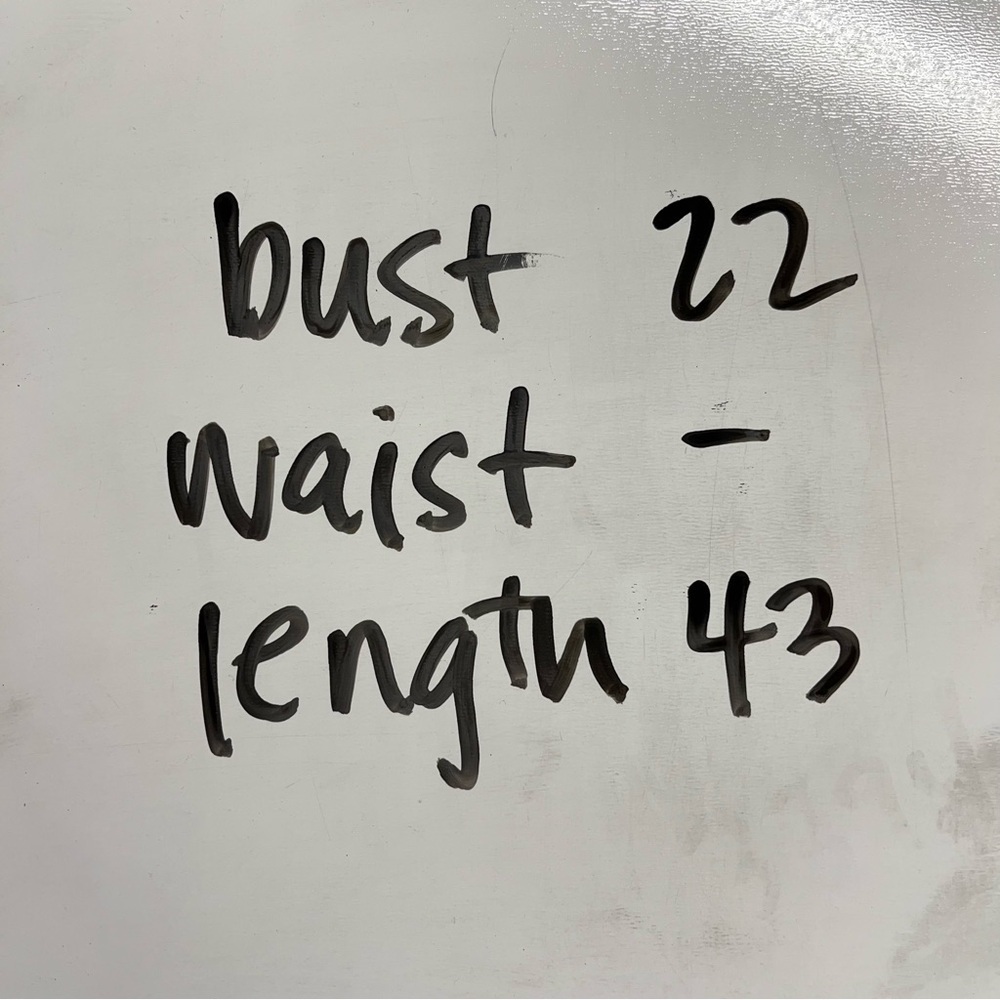 bust 22
waist -
length 43